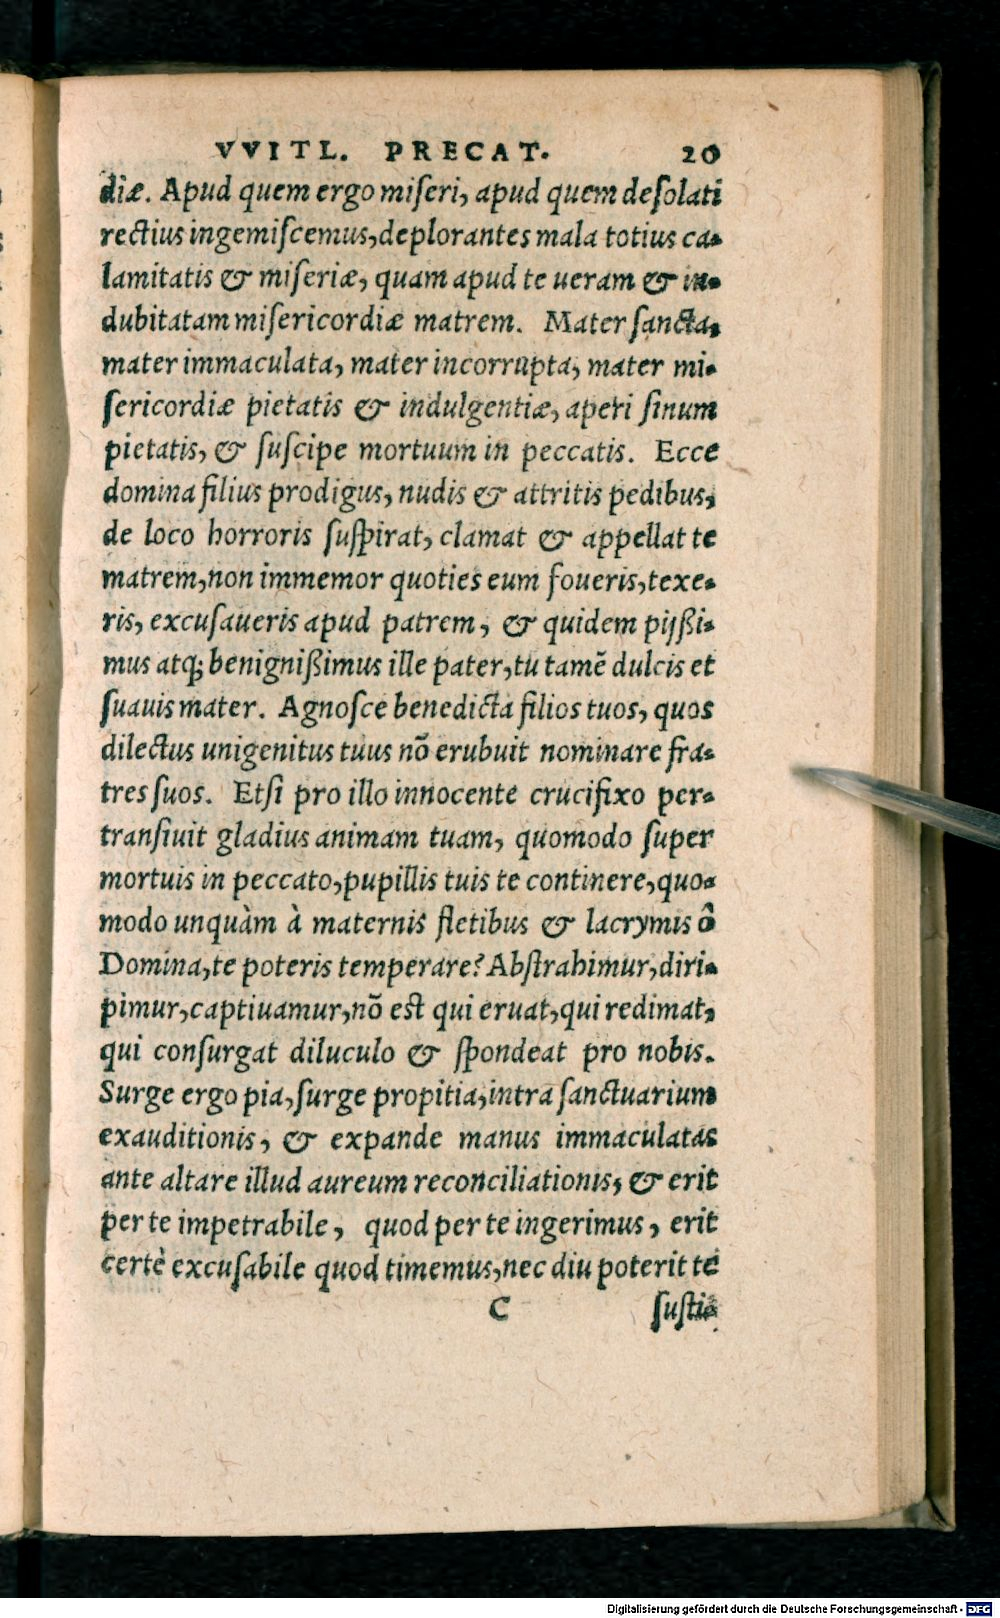 VVITL. PRECAT. 20
diæ. Apud quem ergo miseri, apud quem desolati
rectius ingemiscemus, deplorantes mala totius ca-
lamitatis & miseriæ, quam apud te ueram & in-
dubitatam misericordiæ matrem. Mater sancta,
mater immaculata, mater incorrupta, mater mi-
sericordiæ pietatis & indulgentiæ, aperi sinum
pietatis, & suscipe mortuum in peccatis. Ecce
domina filius prodigus, nudis & attritis pedibus,
de loco horroris suspirat, clamat & appellat te
matrem, non immemor quoties eum foueris, texe-
ris, excusaueris apud patrem, & quidem pijßi-
mus atq; benignißimus ille pater, tu tamē dulcis et
suauis mater. Agnosce benedicta filios tuos, quos
dilectus unigenitus tuus nō erubuit nominare fra-
tres suos. Etsi pro illo innocente crucifixo per-
transiuit gladius animam tuam, quomodo super
mortuis in peccato, pupillis tuis te continere, quo-
modo unquàm à maternis fletibus & lacrymis ô
Domina, te poteris temperare? Abstrahimur, diri-
pimur, captiuamur, nō est qui eruat, qui redimat,
qui consurgat diluculo & spondeat pro nobis.
Surge ergo pia, surge propitia, intra sanctuarium
exauditionis, & expande manus immaculatas
ante altare illud aureum reconciliationis, & erit
per te impetrabile, quod per te ingerimus, erit
certè excusabile quod timemus, nec diu poterit te
C susti-
Digitalisierung gefördert durch die Deutsche Forschungsgemeinschaft - DFG